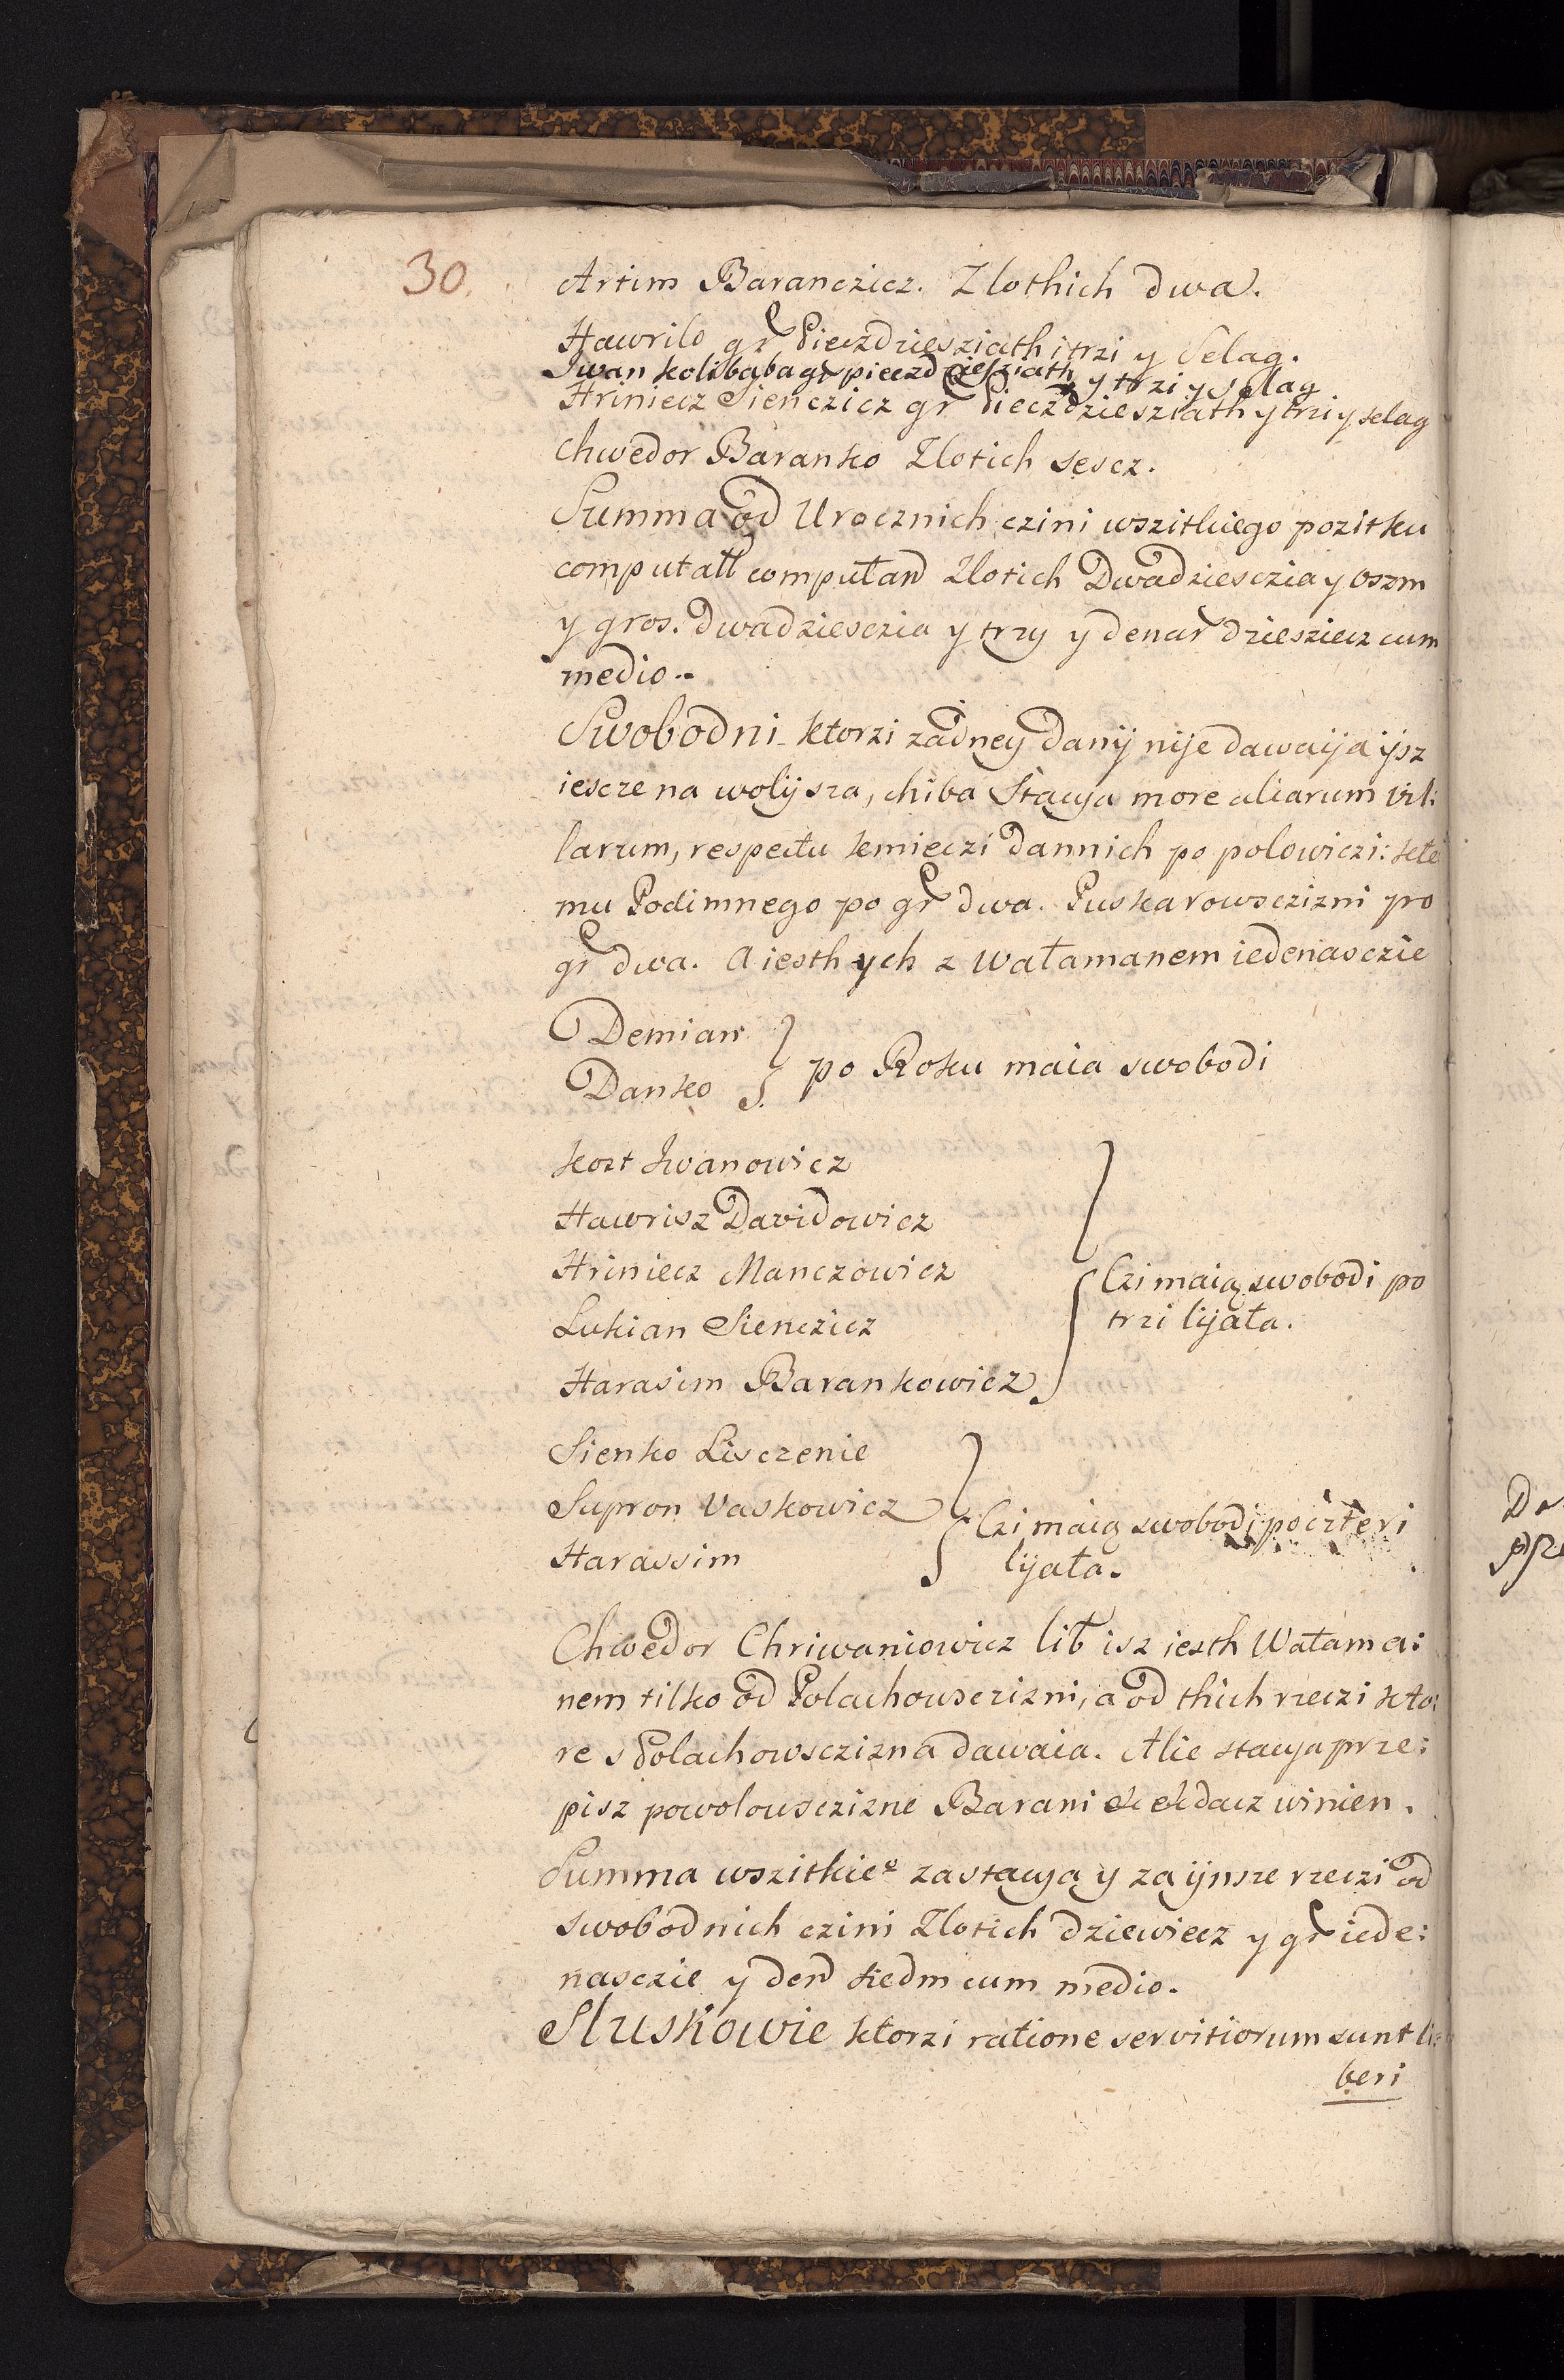 30.
Artim Baranczicz. Zlothich dwa.
Hawrilo gr Pieczdziesziath i trzi y Selag.
Iwan kolibaba gr piecżdziesziath y trzi y selag
Hriniecz Sienczicz gr Pieczdziesziath y trzi y selag
Chwedor Baranko Zlotich sescz.
Summa od Urocznich czini wszitkiego pozitku
computatt computand Zlotich Dwadziesczia y oszm
y gros. dwadziesczia y trzy y denar dziesziecz cum
medio..
Swobodni ktorzi zadney danij nije dawaija ijsz
iescze na wolij sza, chiba Stacya more aliarum vil:
larum, respectu kmieczi dannich po polowiczi: kte
mu Podimnego po gr dwa. Puskarowsczizni pro
gr dwa. A iesth ych z Watamanem iedenasczie
Demian
Danko
po Roku maia swobodi
Kozt Iwanowicz
Hawrisz Davidowicz
Hriniecz Manczowicz
Lukian Sienczicz
Harasim Barankowicz
Czi maią swobodi po
trzi lijata.
Sienko Lisczenie
Supron Vaskowicz
Harassim
Czi maią swobodi po czteri
lijata.
Chwedor Chriwaniowicz lib isz iesth Watama:
nem tilko od Polachowsczizni, a od thich rzeczi kto:
re s Polachowsczizna dawaia. Alie stacya prze:
pisz powolowsczizne Barani etc etc dacz winien.
Summa wszitkieo za stacyą y za ijnsze rzeczi od
swobodnich czini Zlotich dziewiecz y gr iede:
nasczie y den siedm cum medio.
Sluskowie ktorzi ratione servitiorum sunt li:
beri